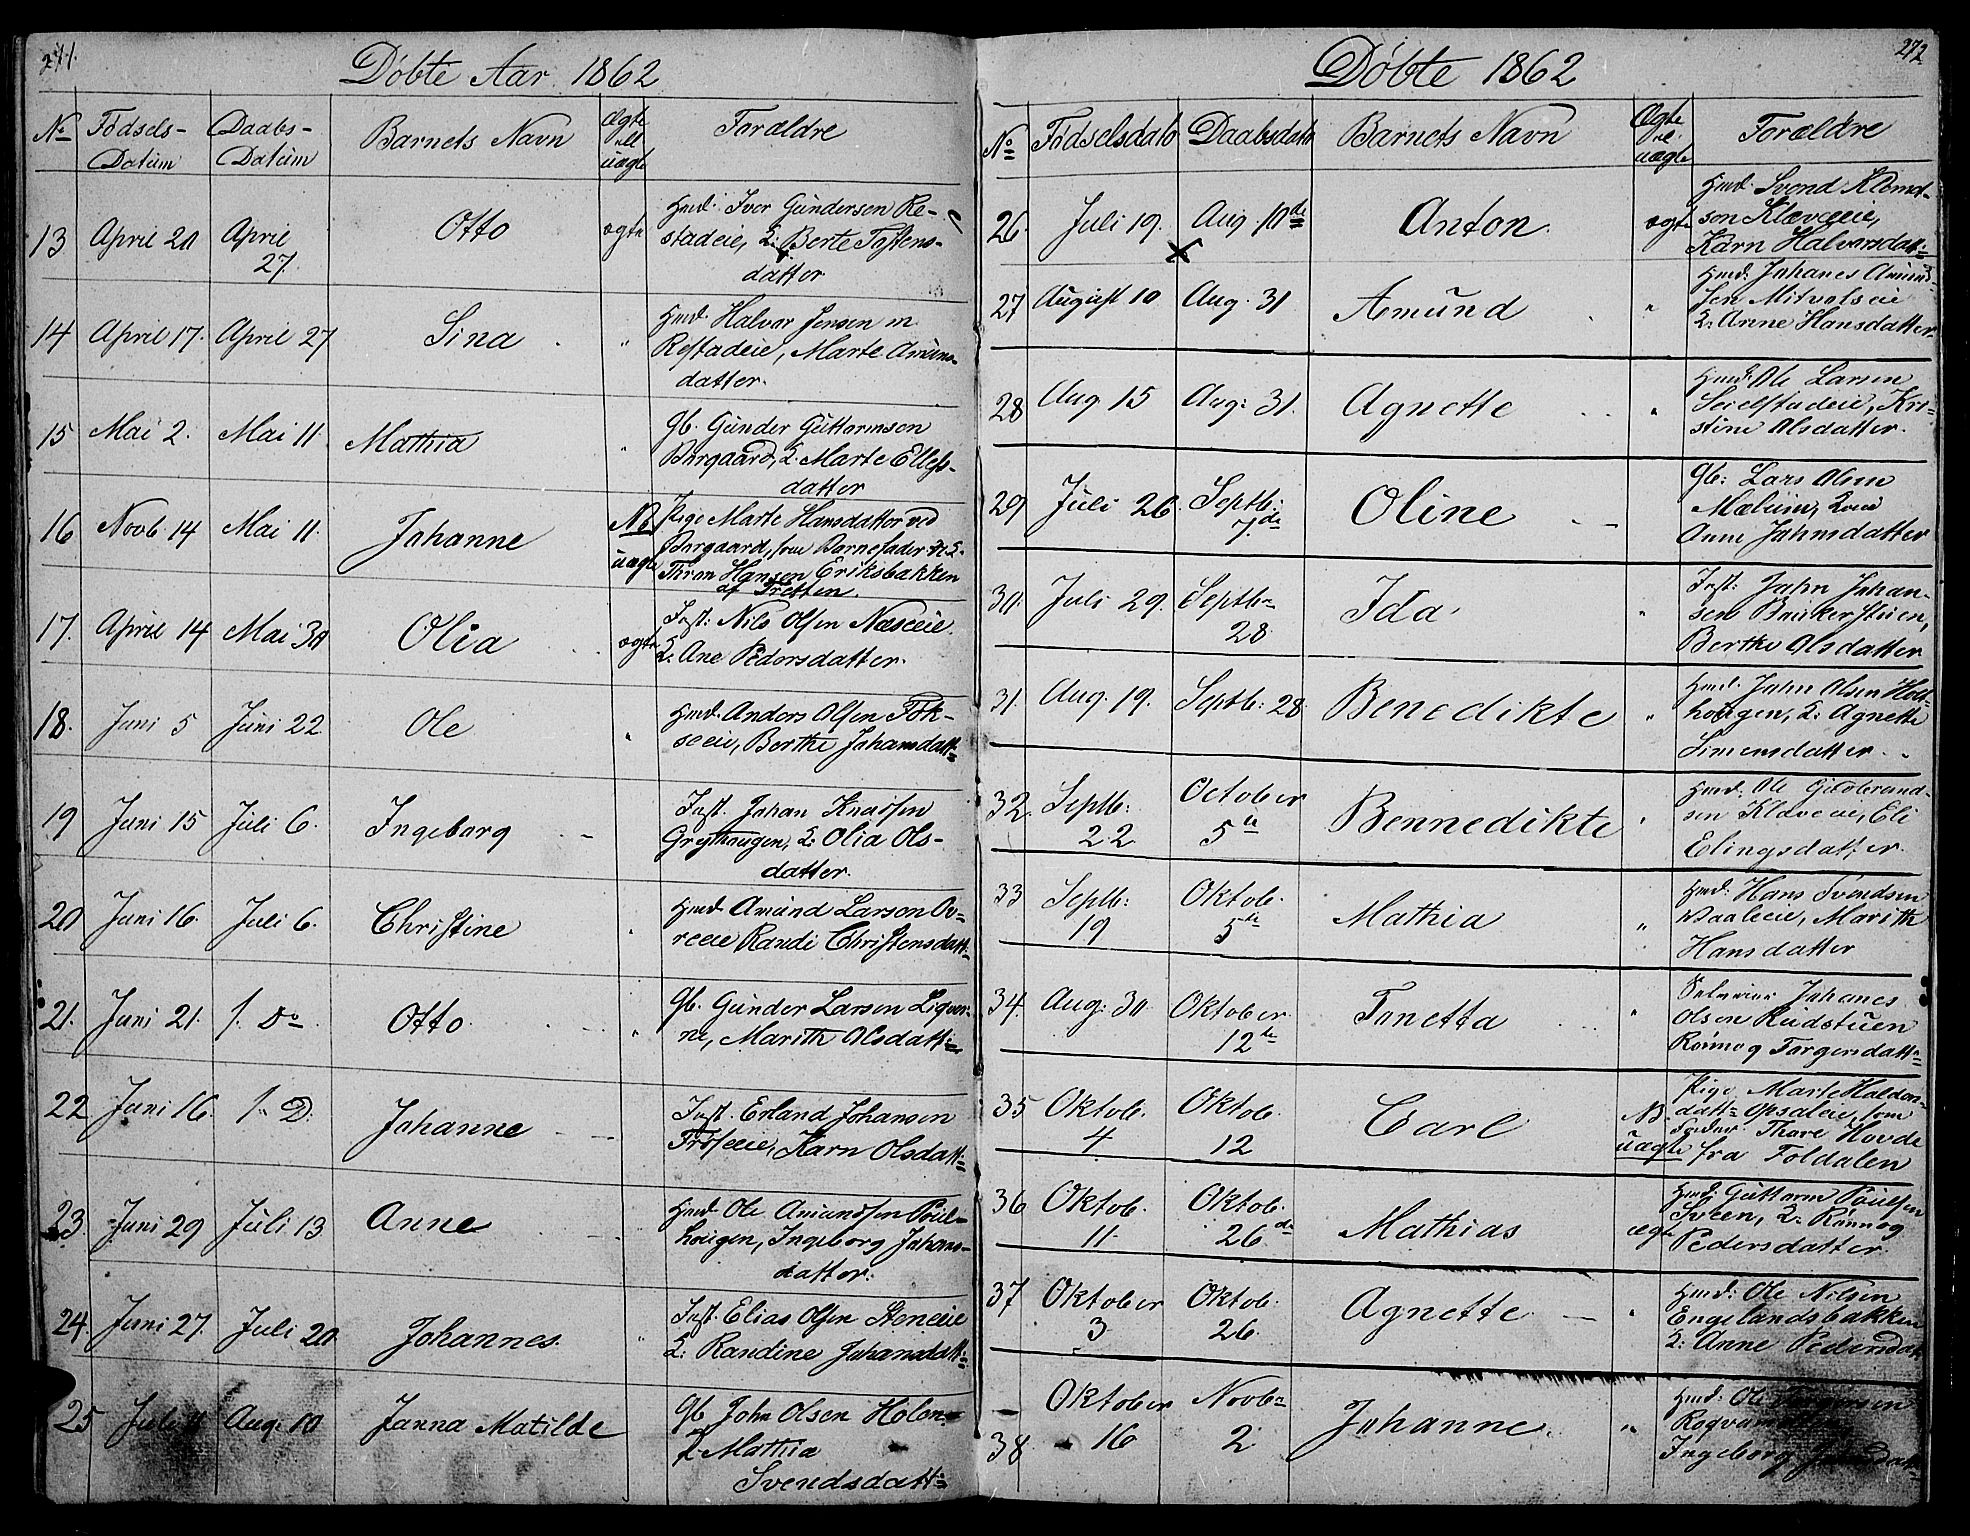 271.
Døbte Aar 1862
No Fødsels-Datum Daabs-Datum Barnets Navn Ægte ell uægte Forældre
13 April 20 April 27. Otto ægte Hmd. Iver Gundersen Re-
stadeie, &: Berte Tostens-
datter
14 April 17. April 27 Sina " Hmd Halvor Jensen m
Restadeie, Marte Amuns-
datter.
15 Mai 2. Mai 11 Mathia " Gb. Gunder Guttormsen
Borgaard, &. Marte Ellefs-
datter
16 Novb 14 Mai 11. Johanne NB uægte Pige Marte Hansdatter ved
Borgaard, som Barnefader
Thron Hansen Eriksbakken
af Tretten.
17. April 14 Mai 30 Olia ægte Inst: Nils Olsen Næseeie.
&. Ane Pedersdatter.
18. Juni 5 Juni 22 Ole " Hmd. Anders Olsen Fok-
seeie, Berthe Johansdatt=
19 Juni 15 Juli 6. Ingeborg Inst. Johan Knudsen
Grythaugen, &: Olia Ols-
datter.
20 Juni 16. Juli 6. Christine " Hmd Amund Larsen Ov-
reeie Randi Christensdatt=
21. Juni 21. f. Do Otto " Gb. Gunder Larsen Liqver-
ne, Marith Olsdatt=
22 Juni 16. f. D. Johanne Inst. Erland Johansen
Froseeie, Karn Olsdatt=
23. Juni 29 Juli 13 Anne Hmd Ole Amundsen Poul-
hougen, Ingeborg Johans-
datter.
24. Juni 27. Juli 20 Johannes. " Inst. Elias Olsen Steneeie
&: Randine Johansdatt=
25 Juli Aug. 10 Janna Matilde Gb John Olsen Holen
& Mathia
Svendsdatt=
272
Døbte 1862
No Fødselsdato Daabsdato Barnets Navn Ægte el. uægte Forældre
26. Juli 19. Aug. 10de Anton. ægte Hmd. Svend Klemd-
son Klæveeie,
Karn Halvorsdatt=
27 August 10 Aug. 31 Amund " Hmd: Johanes Amund-
sen Mitvolseie
&. Anne Hansdatter
28 Aug 15 Aug: 31. Agnette " Hmd. Ole Larsen
Seielstadeie, Kri-
stine Olsdatter.
29 Juli 26. Septb: 7.de Oline Gb: Lars Olsen
Mælum,
Anne Johnsdatter
30. Juli 29. Septb= 28 Ida " Inst: John Johan-
sen Brukerstuen,
Berthe Olsdatter
31. Aug. 19. Septb: 28 Benedikte " Hmd. John Olsen Hol-
hougen, &: Agnette
Simensdatter.
32. Septb: 22 October 5te Bennedikte " Hmd: Ole Gildbrand-
sen Klæveeie, Eli
Elingsdatter.
33 Septb: 19 Oktob. 5te Mathia " Hmd: Hans Svendsen
Vaaleeie, Marith
Hansdatter
34. Aug: 30. Oktober 12te Tonetta " Johanes
Olsen Rudstuen
Rønnog Torgersdatt=
35 Oktob. 4 Oktob. 12 Carl NB. uægte Pige Marte Haldors-
datt= Opsaleie, som
Fader Thore Hovde
fra Foldalen
36 Oktob. 11 Oktob. 26de Mathias ægte Hmd: Guttorm Poulsen
Sveen, &: Rønnog
Pedersdatter.
37 Oktober 3 Oktob: 26. Agnette " Hmd: Ole Nilsen
Engelandsbakken
&: Anne Pedersdatt
38 Oktober 16 Novb= 2 Johanne. " Hmd: Ole Torgersen
Ingeborg Johnsdatt=